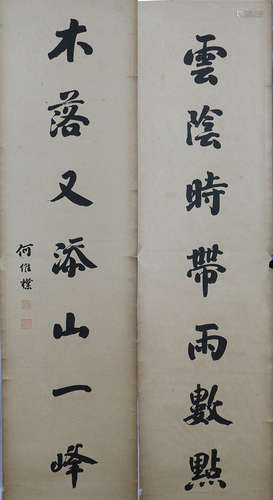 雲陰時帶雨數點
木落又添山一峰
何維樸